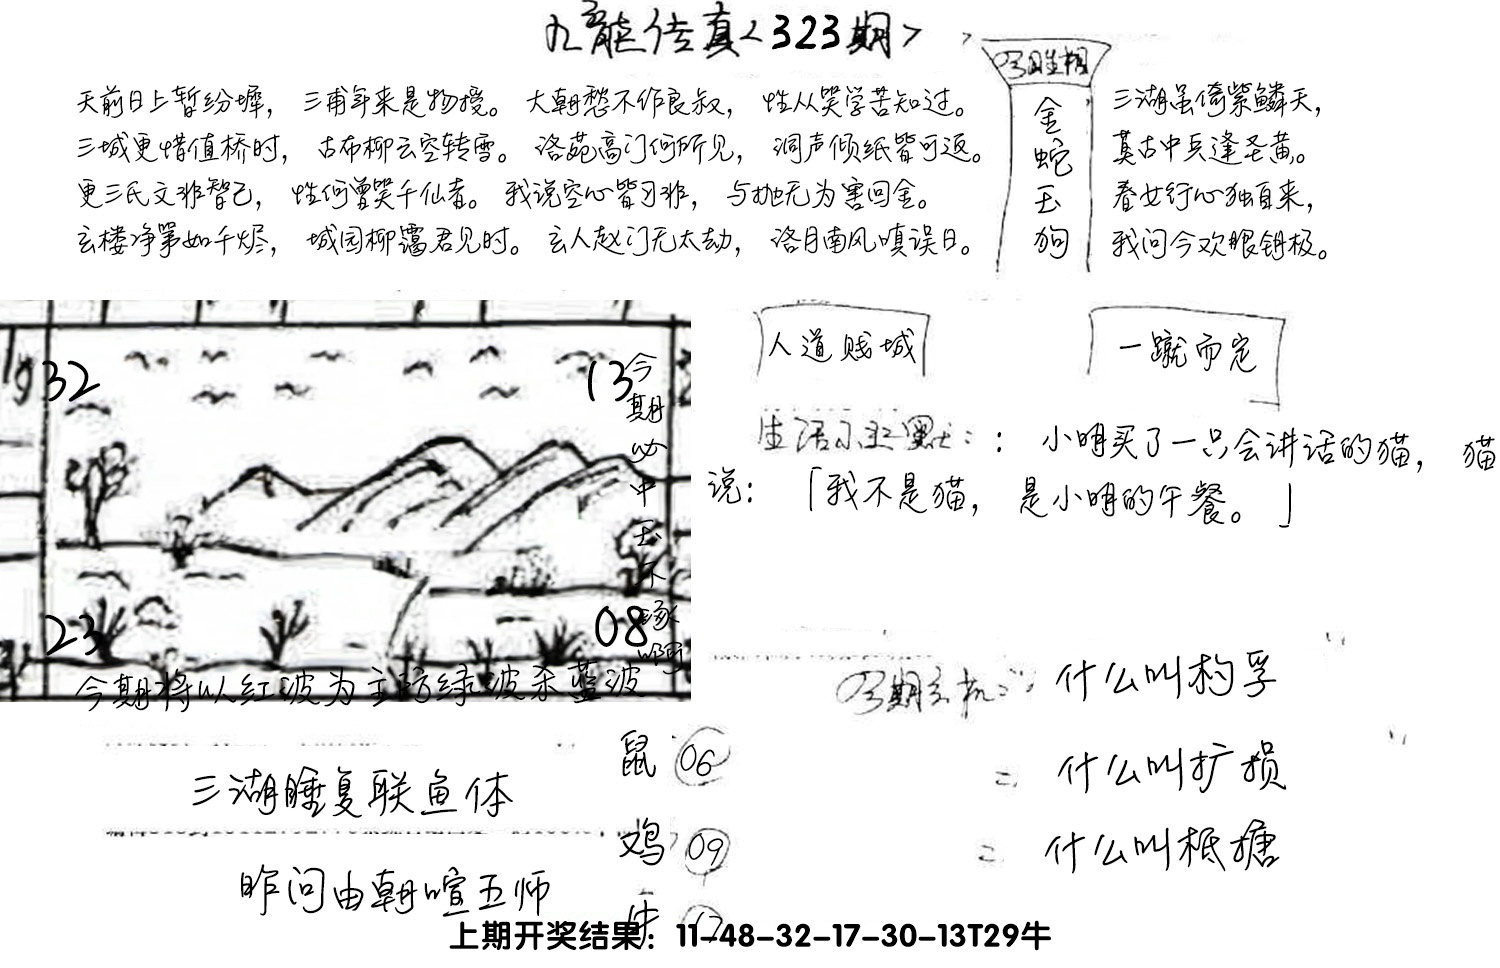 九龙传真<323期>
天前日上暂纷墀，三甫年来是物授。大朝愁不作良叔，性从笑学苦知过。
三城更惜值桥时，古布柳云空转雪。洛苑高门何所见，洞声倾纸皆可返。
更三氏文非智己，性何曾笑千仙者。我说空心皆习非，与抛无为害回金。
玄楼净第如千烬，城园柳霭君见时。玄人赵门无太劫，洛月南风嗔误日。
金
蛇
玉
狗
三湖虽倚紫鳞天，
莫古中兵逢圣黄。
春女行心独自来，
我问今欢眼钥极。
32
13
今期必中玉不琢啊
23
08
今期将以红波为主防绿波杀蓝波
人道贱城
一蹴而定
生活小幽默：：小明买了一只会讲话的猫，猫
说：「我不是猫，是小明的午餐。」
什么叫杓孚
什么叫扩损
什么叫柢搪
三湖睡复联鱼体
昨问由朝喧五师
鼠 06
鸡 09
牛
上期开奖结果：11-48-32-17-30-13T29牛